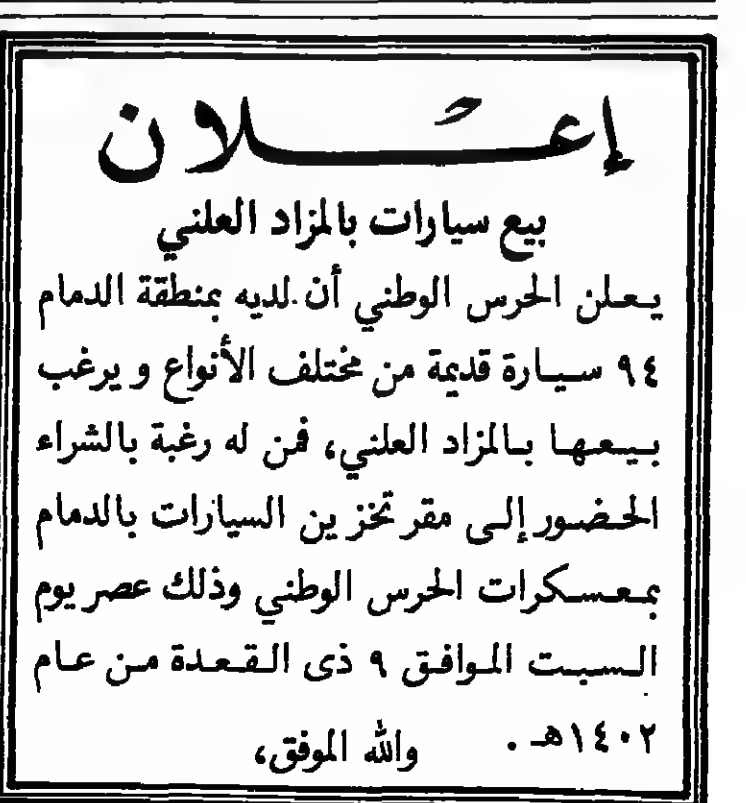 إعلان
بيع سيارات بالمزاد العلني
يعلن الحرس الوطني أن لديه بمنطقة الدمام
٩٤ سيارة قديمة من مختلف الأنواع و يرغب
بيعها بالمزاد العلني، فمن له رغبة بالشراء
الحضور إلى مقر تخزين السيارات بالدمام
بمعسكرات الحرس الوطني وذلك عصر يوم
السبت الموافق ٩ ذى القعدة من عام
١٤٠٢هـ . والله الموفق،